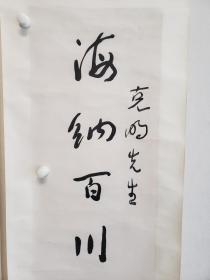 克明先生
海纳百川